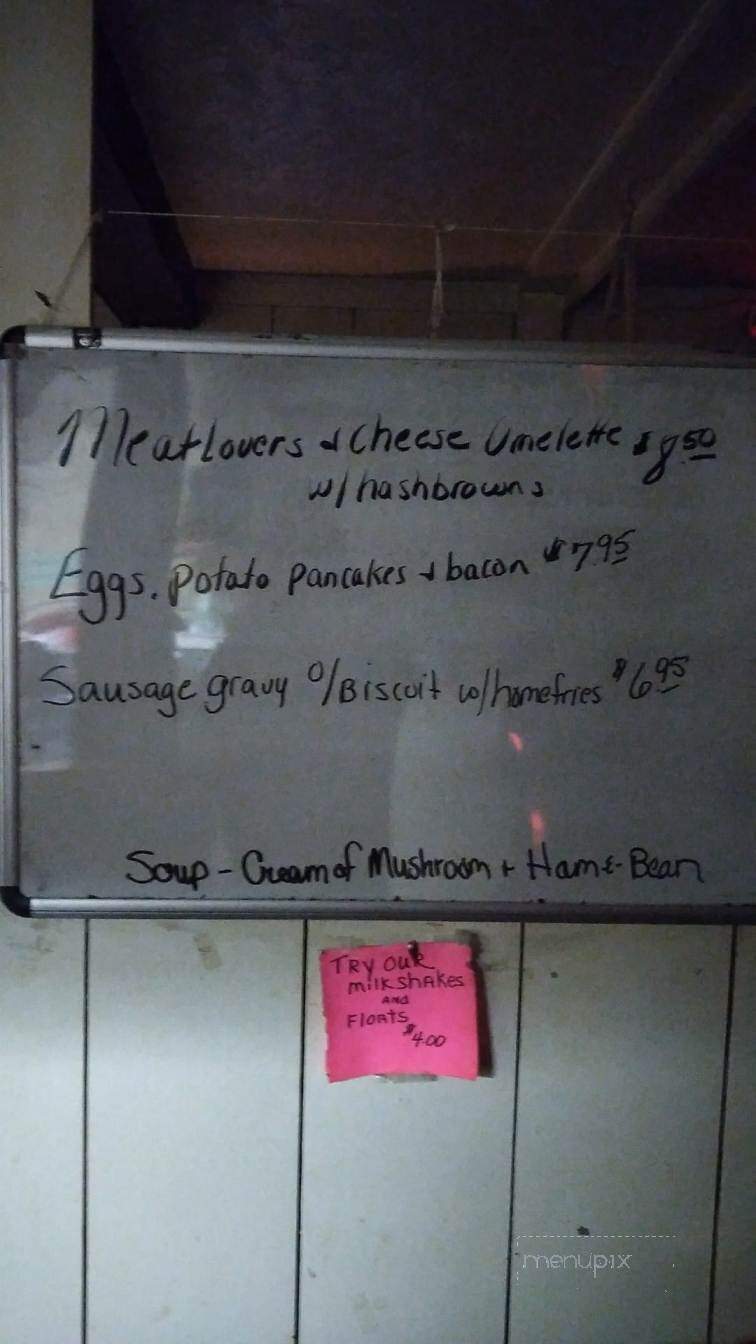 Meatlovers & Cheese Omelette $8.50
w/hashbrowns
Eggs. Potato Pancakes & bacon $7.95
Sausage gravy o/Biscuit w/homefries $6.95
Soup - Cream of Mushroom + Ham & Bean
TRY OUR
milkshakes
AND
Floats
$4.00
menupix